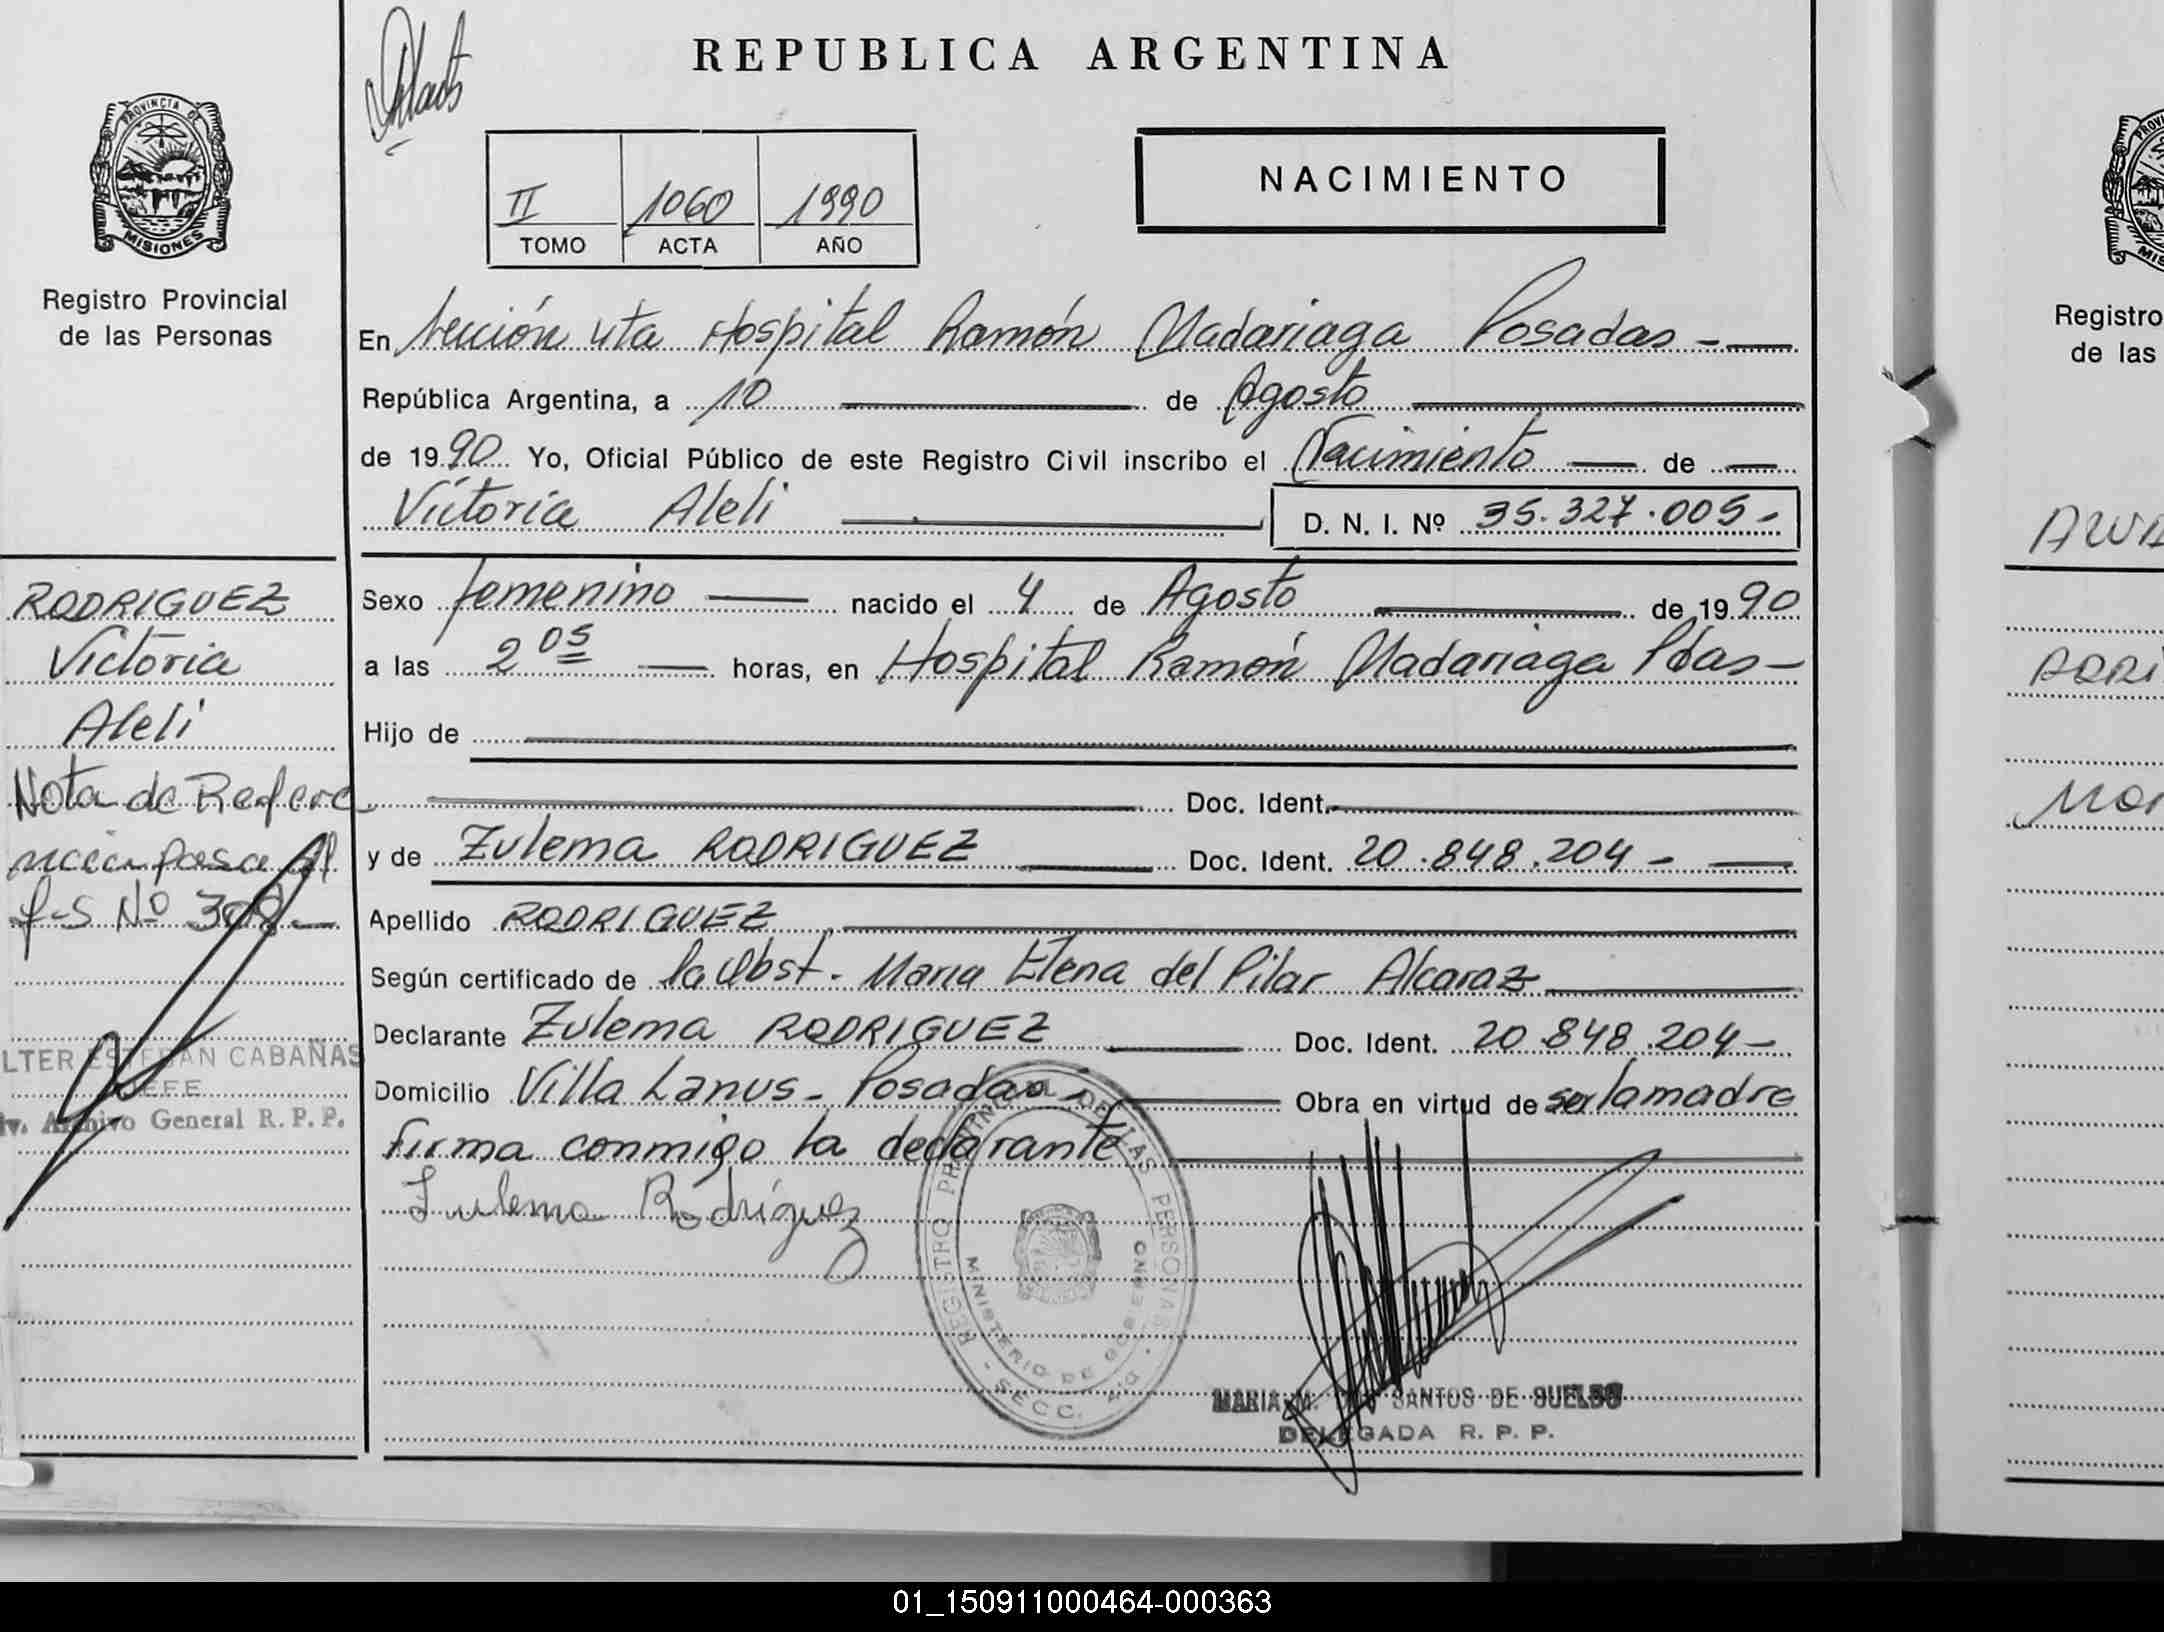 REPUBLICA ARGENTINA
PROVINCIA DE
MISIONES
Registro Provincial
de las Personas
II 1060 1990
TOMO ACTA AÑO
NACIMIENTO
En Sección 4ta Hospital Ramón Madariaga Posadas -
República Argentina, a 10 de Agosto
de 1990 Yo, Oficial Público de este Registro Civil inscribo el Nacimiento de
Victoria Aleli D. N. I. Nº 35.327.005-
Sexo femenino nacido el 4 de Agosto de 1990
a las 2 05 horas, en Hospital Ramón Madariaga Pdas-
Hijo de
Doc. Ident.
y de Zulema RODRIGUEZ Doc. Ident. 20.848.204-
Apellido RODRIGUEZ
Según certificado de la Obst. Maria Elena del Pilar Alcaraz
Declarante Zulema RODRIGUEZ Doc. Ident. 20.848.204-
Domicilio Villa Lanus - Posadas - Obra en virtud de ser la madre
Firma conmigo la declarante
Zulema Rodríguez
REGISTRO PROVINCIAL DE LAS PERSONAS
MINISTERIO DE GOBIERNO
SECC. 4a.
MARIA M. DOS SANTOS DE SUELDO
DELEGADA R. P. P.
RODRIGUEZ
Victoria
Aleli
Nota de Refere
ncia pasa al
LTER ESTEBAN CABAÑAS
JEFE
iv. Archivo General R. P. P.
Registro
de las
01_150911000464-000363